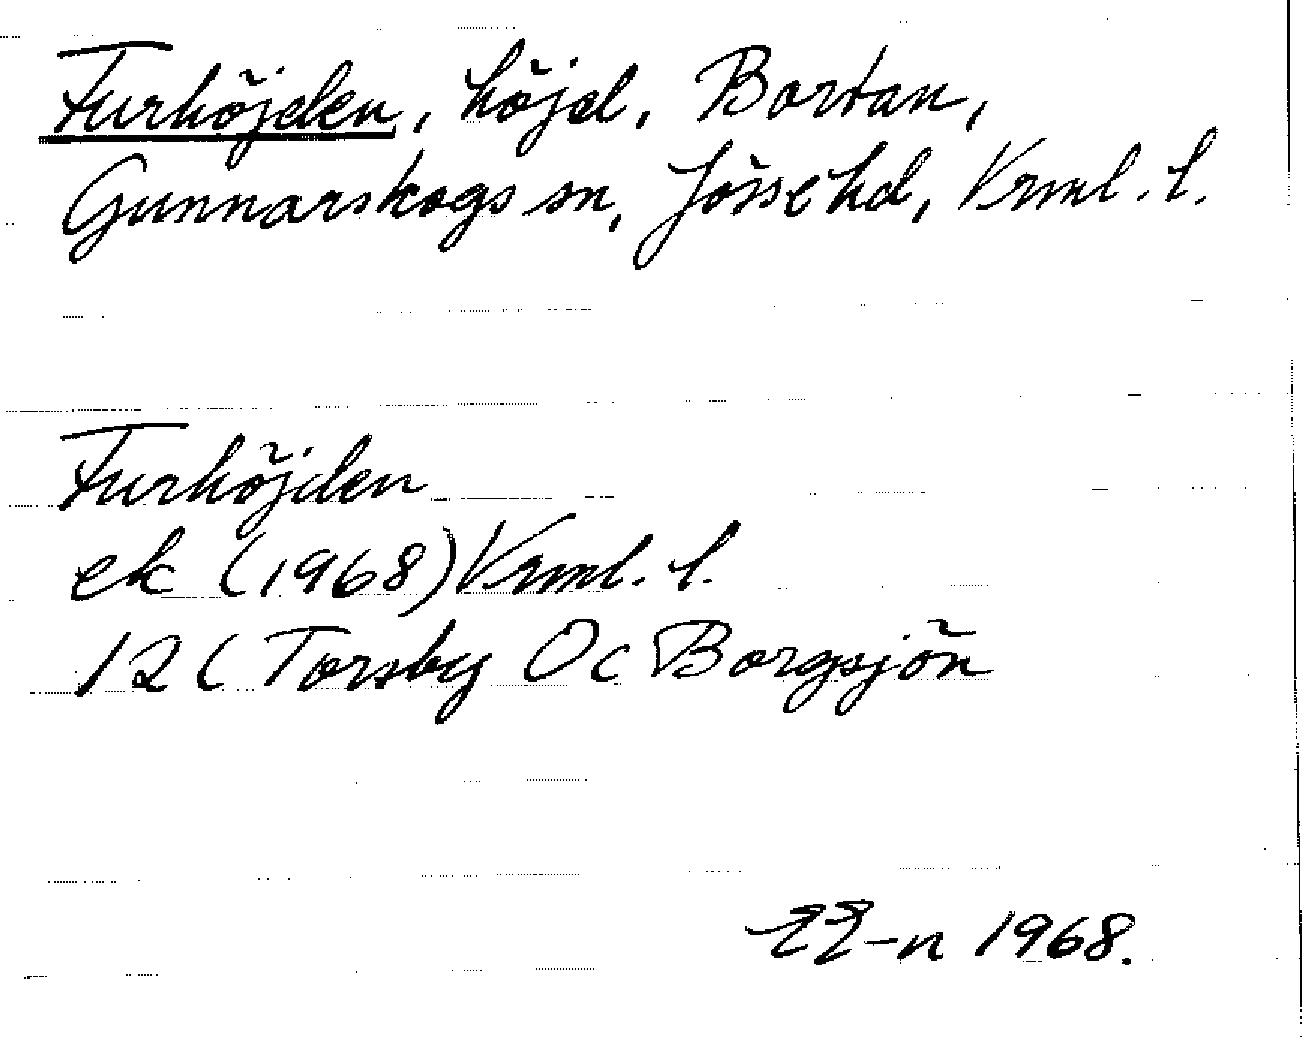 Furhöjden, höjd, Bortan,
Gunnarskogs sn, Jösse hd, Vrml. l.
Furhöjden
ek (1968) Vrml. l.
12 C Torsby Oc Borgsjön
EE-n 1968.